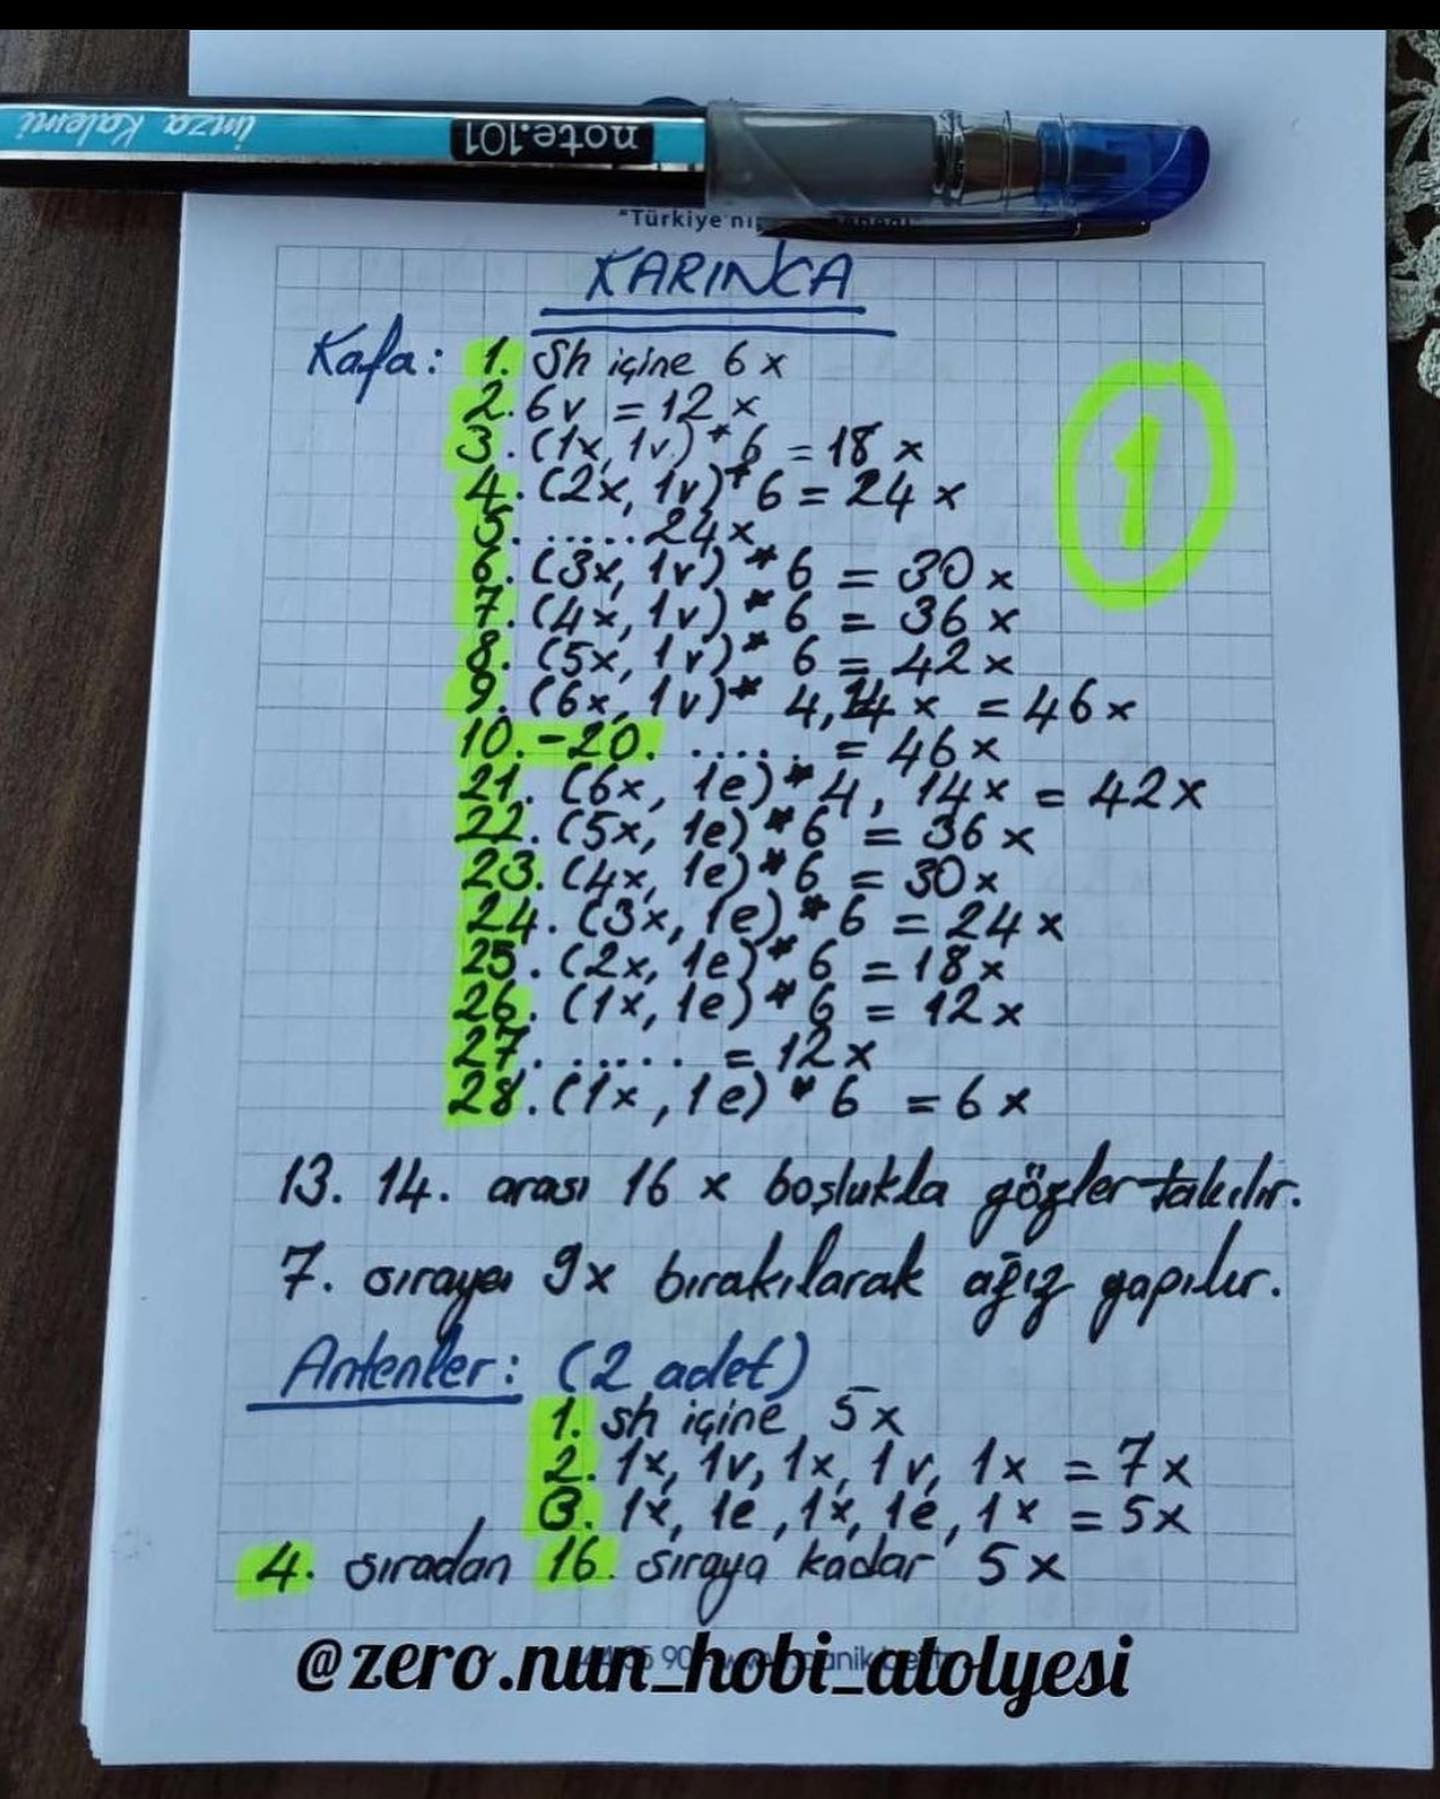 imza kalemi
note.101
"Türkiye'nin
KARINCA
Kafa: 1. Sh içine 6 x
2. 6v = 12 x
3. (1x, 1v) * 6 = 18 x
4. (2x, 1v) * 6 = 24 x
5. ..... 24x
6. (3x, 1v) * 6 = 30 x
7. (4x, 1v) * 6 = 36 x
8. (5x, 1v) * 6 = 42 x
9. (6x, 1v) * 4, 14 x = 46 x
10. - 20. ..... = 46 x
21. (6x, 1e) * 4, 14x = 42x
22. (5x, 1e) * 6 = 36 x
23. (4x, 1e) * 6 = 30x
24. (3x, 1e) * 6 = 24 x
25. (2x, 1e) * 6 = 18x
26. (1x, 1e) * 6 = 12x
27. ..... = 12x
28. (1x, 1e) * 6 = 6x
1
13. 14. arası 16 x boşlukla gözler takılır.
7. sıraya 9x bırakılarak ağız yapılır.
Antenler: (2 adet)
1. sh içine 5x
2. 1x, 1v, 1x, 1v, 1x = 7x
3. 1x, 1e, 1x, 1e, 1x = 5x
4. sıradan 16. sıraya kadar 5x
@zero.nun_hobi_atolyesi